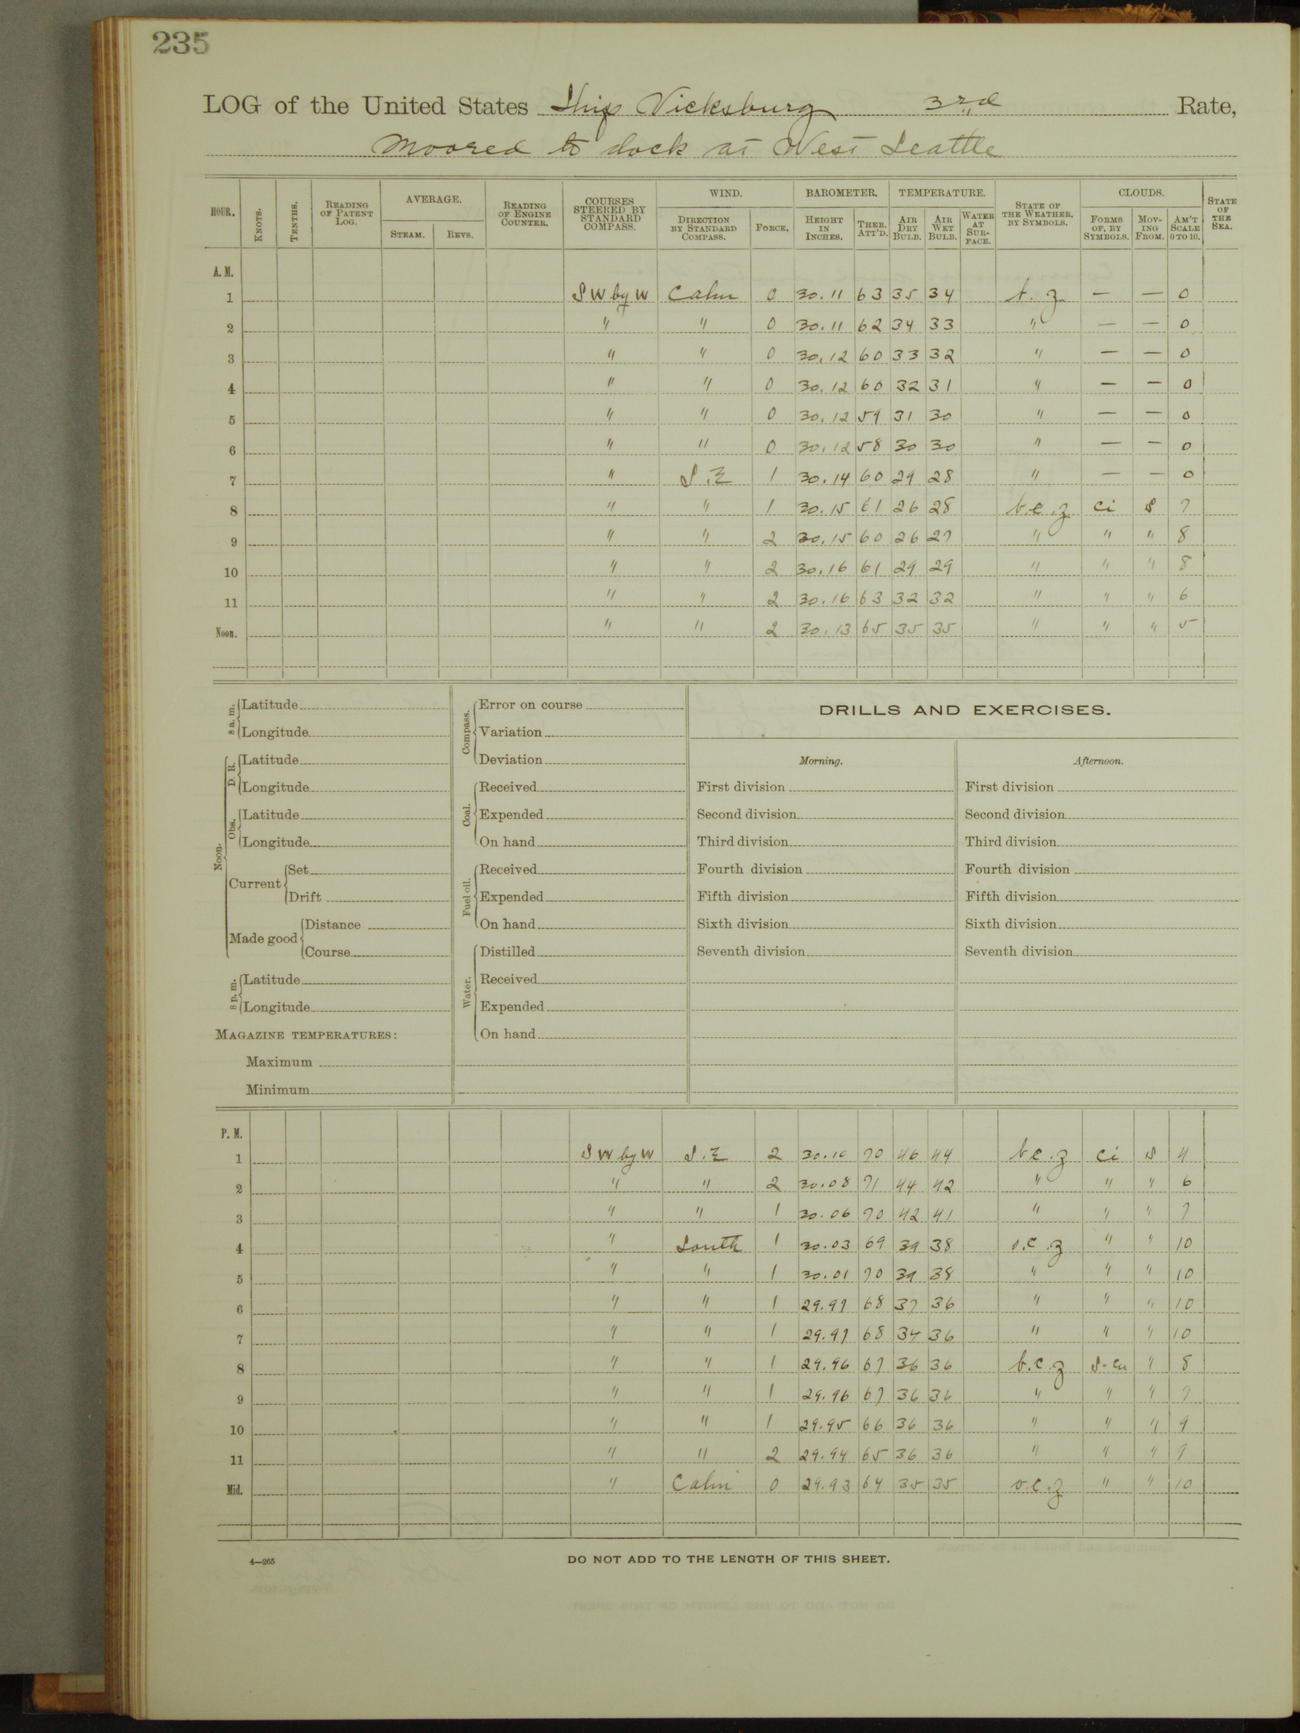 235
LOG of the United States Ship Vicksburg 3rd Rate,
Moored to dock at West Seattle
HOUR. KNOTS. TENTHS. READING OF PATENT LOG. AVERAGE. STEAM. REVS. READING OF ENGINE COUNTER. COURSES STEERED BY STANDARD COMPASS. WIND. DIRECTION BY STANDARD COMPASS. FORCE. BAROMETER. HEIGHT IN INCHES. THER. ATT'D. TEMPERATURE. AIR DRY BULB. AIR WET BULB. WATER AT SURFACE. STATE OF THE WEATHER, BY SYMBOLS. CLOUDS. FORMS OF, BY SYMBOLS. MOVING FROM. AM'T SCALE 0 TO 10. STATE OF THE SEA.
A.M.
1 SW by W Calm 0 30.11 63 35 34 b. z — — 0
2 " " 0 30.11 62 34 33 " — — 0
3 " " 0 30.12 60 33 32 " — — 0
4 " " 0 30.12 60 32 31 " — — 0
5 " " 0 30.12 59 31 30 " — — 0
6 " " 0 30.12 58 30 30 " — — 0
7 " S.E 1 30.14 60 29 28 " — — 0
8 " " 1 30.15 61 26 28 b.c.z ci S 7
9 " " 2 30.15 60 26 27 " " " 8
10 " " 2 30.16 61 29 29 " " " 8
11 " " 2 30.16 63 32 32 " " " 6
Noon. " " 2 30.13 65 35 35 " " " 5
8 a. m. Latitude
Longitude
Noon. D. R. Latitude
Longitude
Obs. Latitude
Longitude
Current Set
Drift
Made good Distance
Course
8 p. m. Latitude
Longitude
MAGAZINE TEMPERATURES:
Maximum
Minimum
Compass. Error on course
Variation
Deviation
Coal. Received
Expended
On hand
Fuel oil. Received
Expended
On hand
Water. Distilled
Received
Expended
On hand
DRILLS AND EXERCISES.
Morning. Afternoon.
First division First division
Second division Second division
Third division Third division
Fourth division Fourth division
Fifth division Fifth division
Sixth division Sixth division
Seventh division Seventh division
P. M.
1 SW by W S.E 2 30.10 70 46 44 b.c.z ci S 4
2 " " 2 30.08 71 44 42 " " " 6
3 " " 1 30.06 70 42 41 " " " 7
4 " South 1 30.03 69 39 38 o.c.z " " 10
5 " " 1 30.01 70 39 38 " " " 10
6 " " 1 29.97 68 37 36 " " " 10
7 " " 1 29.97 68 37 36 " " " 10
8 " " 1 29.96 67 36 36 b.c.z S-cu " 8
9 " " 1 29.96 67 36 36 " " " 7
10 " " 1 29.95 66 36 36 " " " 9
11 " " 2 29.94 65 36 36 " " " 9
Mid. " Calm 0 29.93 64 35 35 o.c.z " " 10
4—265 DO NOT ADD TO THE LENGTH OF THIS SHEET.